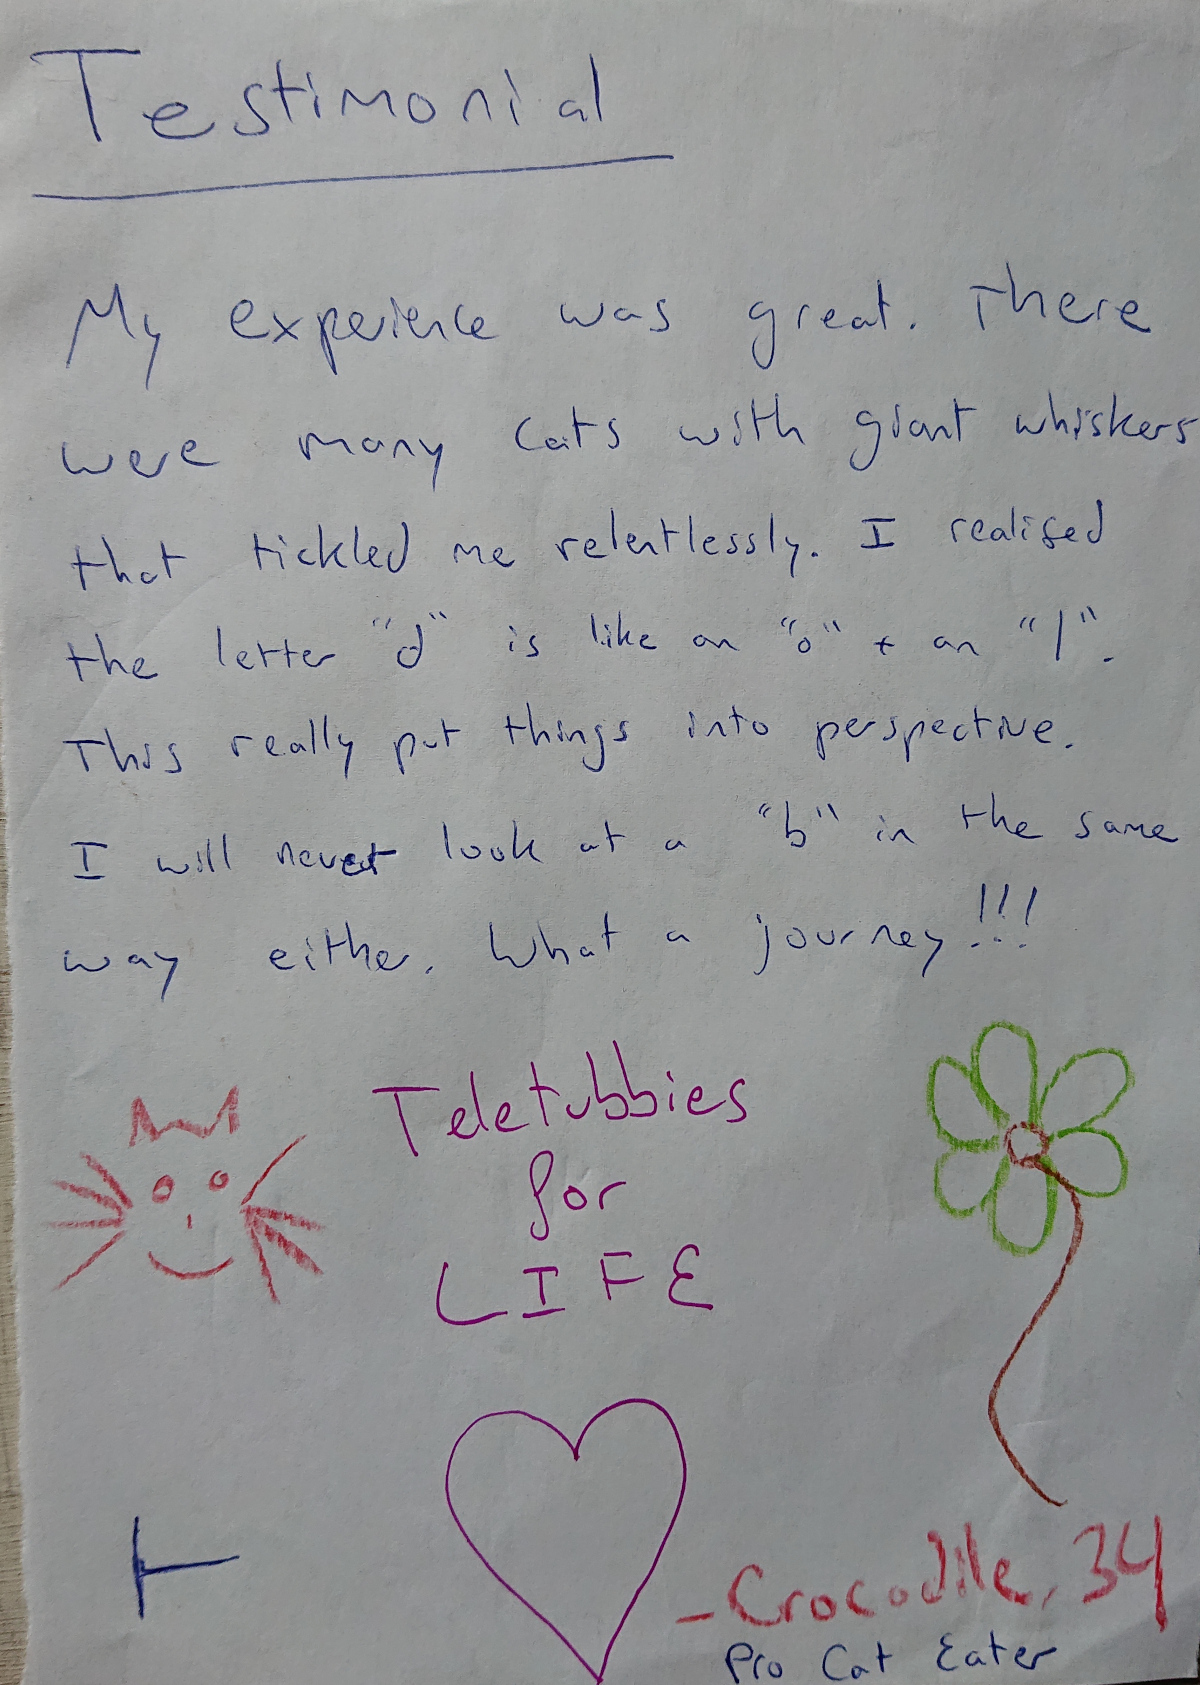 Testimonial
My experience was great. There
were many cats with giant whiskers
that tickled me relentlessly. I realised
the letter "d" is like an "o" + an "l".
This really put things into perspective.
I will never look at a "b" in the same
way either. What a journey!!!
Teletubbies
for
LIFE
- Crocodile, 34
Pro Cat Eater